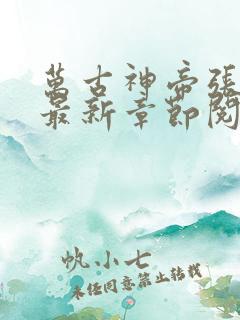 萬古神帝張
最新章節閱
帆小七
未任同意禁止轉載